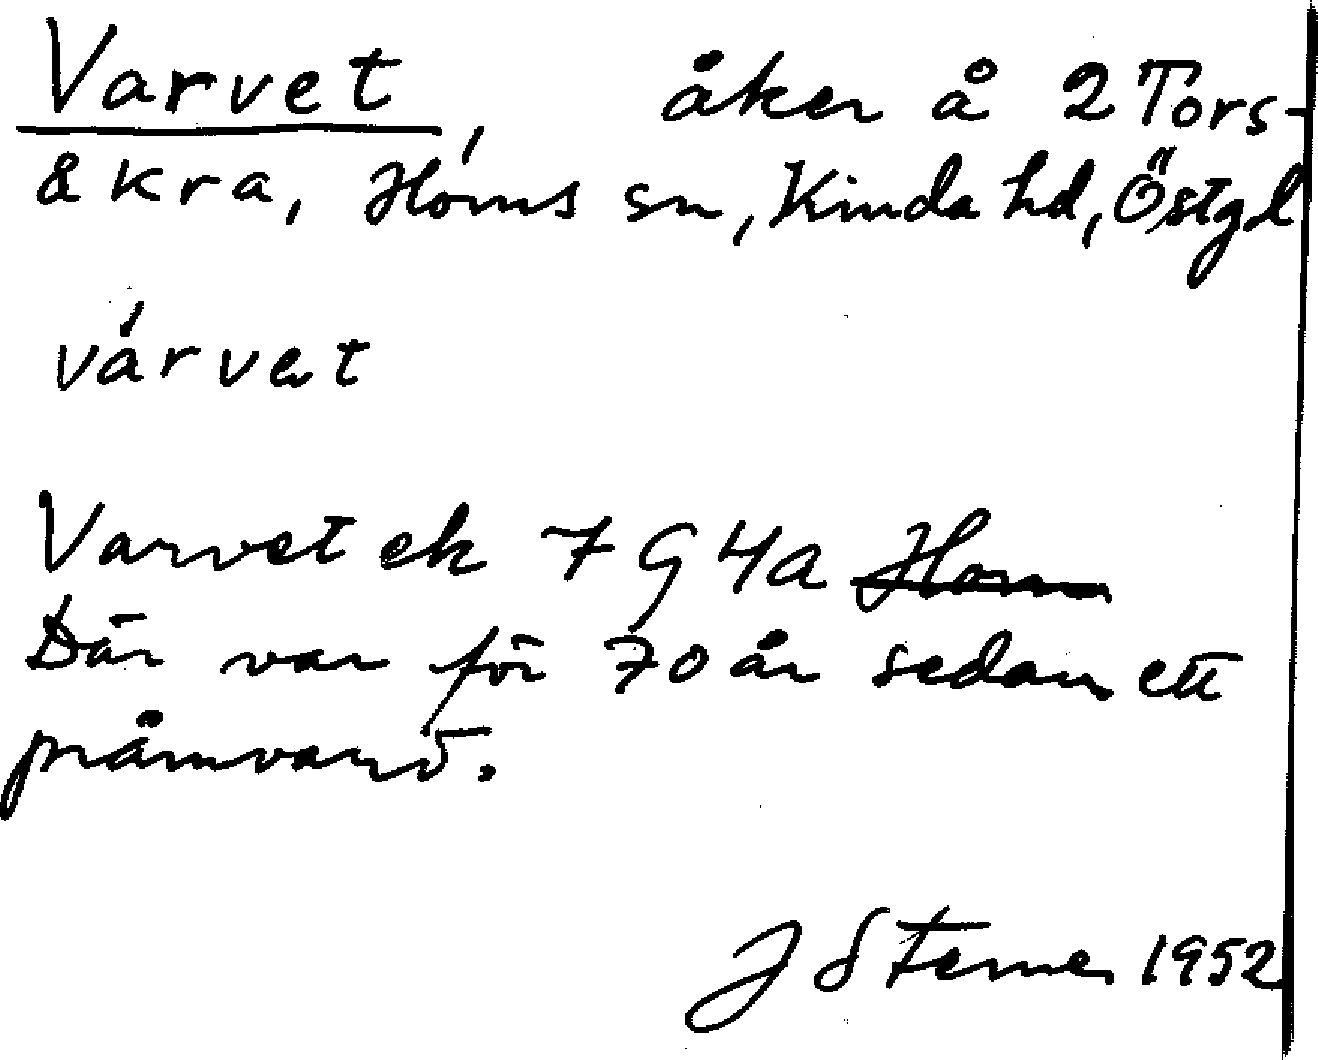 Varvet, åker å 2 Tors-
åkra, Horns sn, Kinda hd, Östgl
várvet
Varvet ek 7 G 4a Horn
Där var för 70 år sedan ett
pråmvarv.
J Sterner 1952